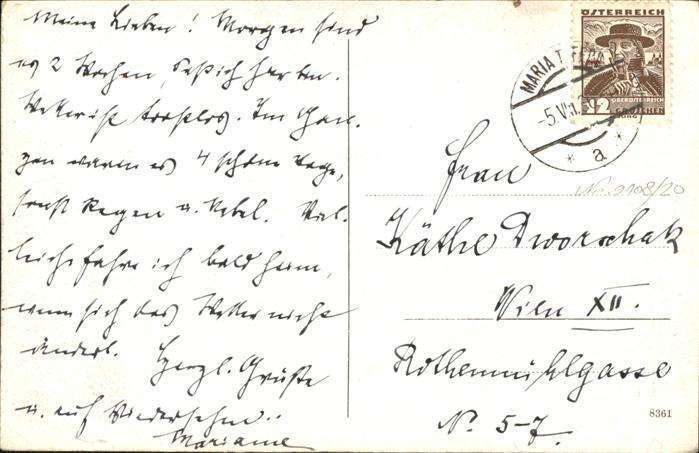 Meine Lieben! Morgen sind
es 2 Wochen, daß ich hier bin.
Wetter ist trostlos. Im Gan-
zen waren es 4 schöne Tage,
sonst Regen u. Nebel. Viel-
leicht fahre ich bald heim,
wenn sich das Wetter nicht
ändert. Herzl. Grüße
u. auf Wiedersehn..
Marianne
ÖSTERREICH
MARIA
-5.VII.
* a *
12
OBERÖSTERREICH
GROSCHEN
No. 9108/20
Frau
Käthe Dworschak
Wien XII.
Rothenmühlgasse
No. 5-7.
8361